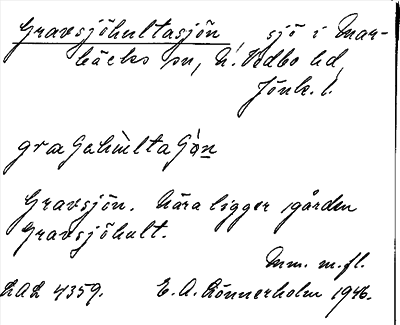 Gravsjöhultasjön, sjö i Mar-
bäcks sn, N. Vedbo hd,
Jönk. l.
Gravsjön. Nära ligger gården
Gravsjöhult.
Mm. m.fl.
LAL 4359. E. A. Rönnerholm 1946.